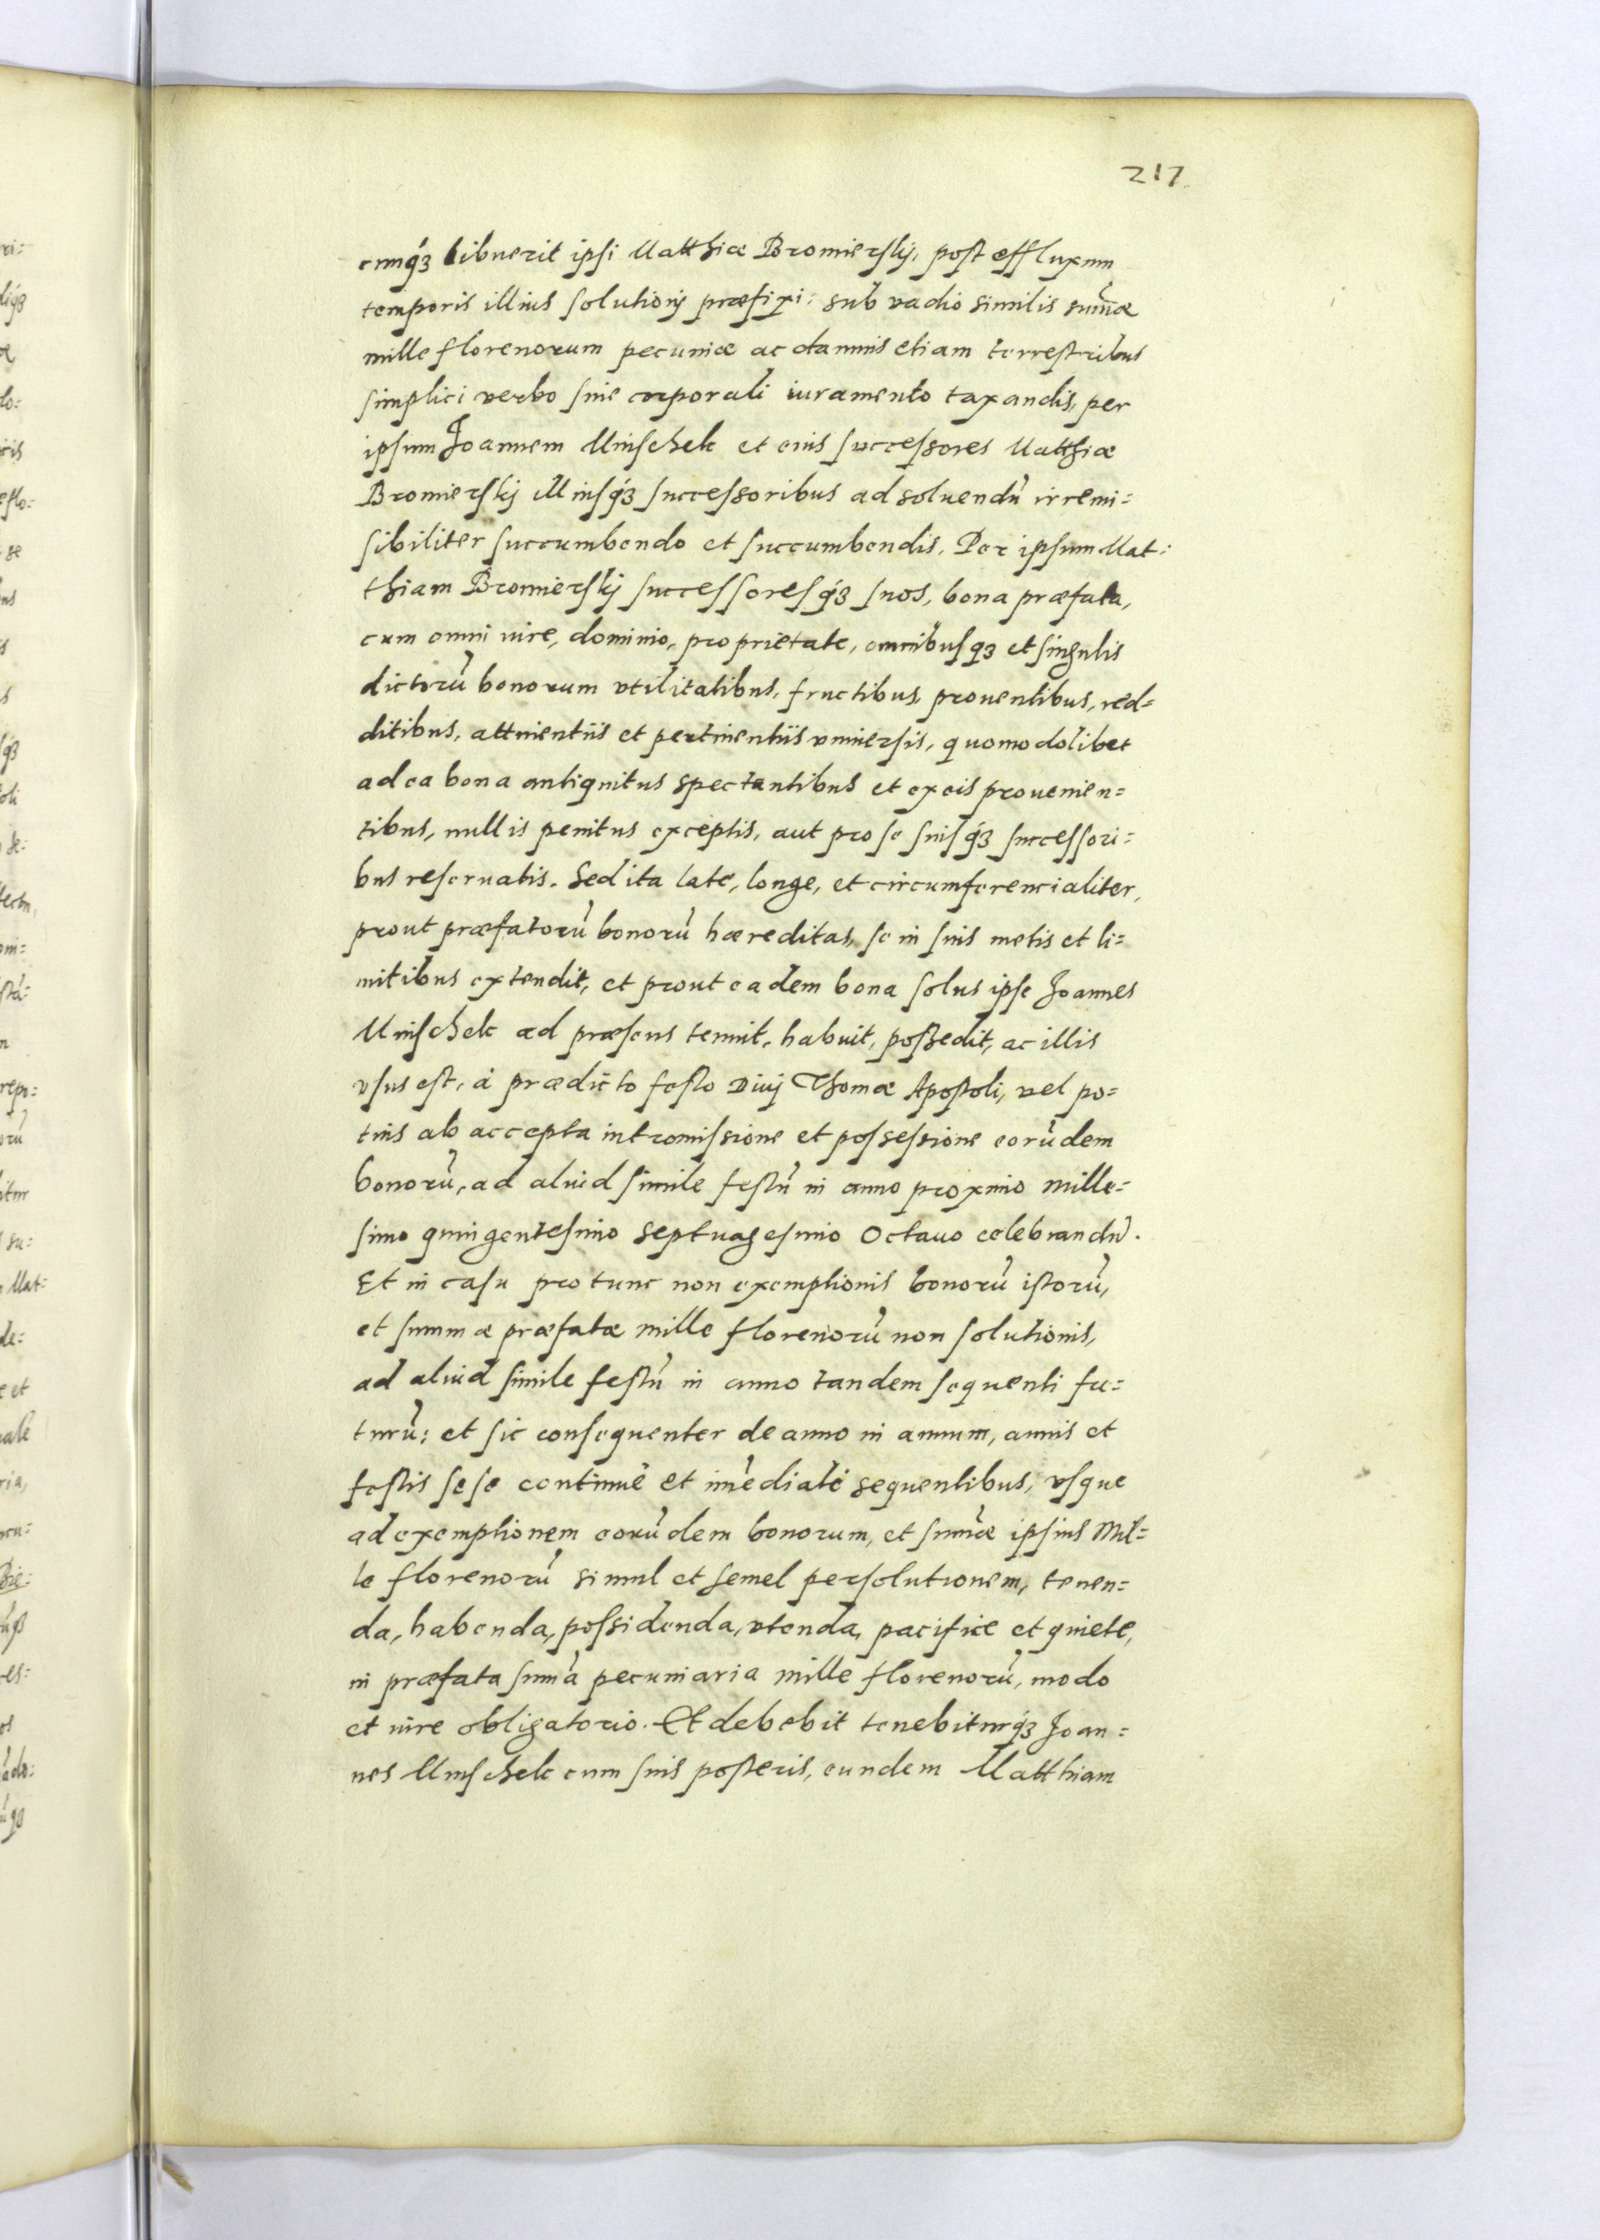 217
cunq́ꝫ libuerit ipsi Matthiæ Bromierskÿ, post effluxum
temporis illius solutionj præfixi: sub vadio similis sum̄æ
mille florenorum pecuniæ ac damnis etiam terrestribus
simplici verbo sine corporali iuramento taxandis, per
ipsum Joannem Mnischek et eius successores Matthiæ
Bromierskj illiusq́ꝫ successoribus ad soluendū irremi=
sibiliter succumbendo et succumbendis. Per ipsum Mat=
thiam Bromierskj successoresq́ꝫ suos, bona præfata,
cum omni iure, dominio, proprietate, omnibusqꝫ et singulis
dictorū bonorum vtilitatibus, fructibus, prouentibus, red=
ditibus, attinentiis et pertinentiis vniuersis, quomodolibet
ad ea bona antiquitus spectantibus et ex eis prouenien=
tibus, nullis penitus exceptis, aut pro se suisq́ꝫ successori=
bus reseruatis. Sed ita late, longe, et circumferencialiter,
prout præfatorū bonorū hæreditas, se in suis metis et li=
mitibus extendit, et prout eadem bona solus ipse Joannes
Mnischek ad præsens tenuit, habuit, possedit, ac illis
vsus est, à prædicto festo Diuj Thomæ Apostoli, vel po=
tius ab accepta intromissione et possessione eorūdem
bonorū, ad aliud simile festū in anno proximo mille=
simo quingentesimo septuagesimo Octauo celebrandū.
Et in casu pro tunc non exemptionis bonorū istorū,
et summæ præfatæ mille florenorū non solutionis,
ad aliud simile festū in anno tandem sequenti fu=
turū: et sic consequenter de anno in annum, annis et
festis sese continuè et im̄ediatè sequentibus, vsque
ad exemptionem eorūdem bonorum, et sum̄æ ipsius Mil=
le florenorū simul et semel persolutionem, tenen=
da, habenda, possidenda, vtenda, pacifice et quiete,
in præfata sum̄a pecuniaria mille florenorū, modo
et iure obligatorio. Et debebit tenebiturq́ꝫ Joan=
nes Mnischek cum suis posteris, eundem Matthiam